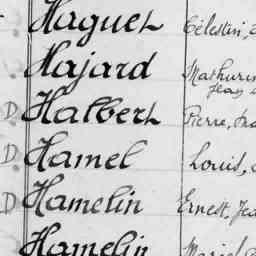 Haguet Célestin,
Hajard Mathurin
Jean
D Halbert Pierre,
D Hamel Louis,
D Hamelin Ernest, Jea
Hamelin